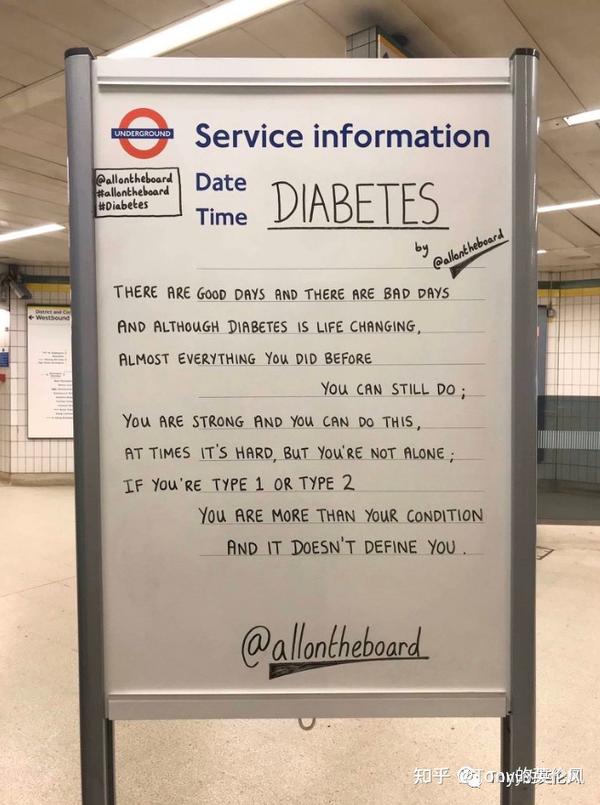 UNDERGROUND
Service information
@allontheboard
#allontheboard
#Diabetes
Date
Time
DIABETES
by @allontheboard
THERE ARE GOOD DAYS AND THERE ARE BAD DAYS
AND ALTHOUGH DIABETES IS LIFE CHANGING,
ALMOST EVERYTHING YOU DID BEFORE
YOU CAN STILL DO;
YOU ARE STRONG AND YOU CAN DO THIS,
AT TIMES IT'S HARD, BUT YOU'RE NOT ALONE;
IF YOU'RE TYPE 1 OR TYPE 2
YOU ARE MORE THAN YOUR CONDITION
AND IT DOESN'T DEFINE YOU.
@allontheboard
District and Cir
← Westbound
知乎 @Tony的英伦风